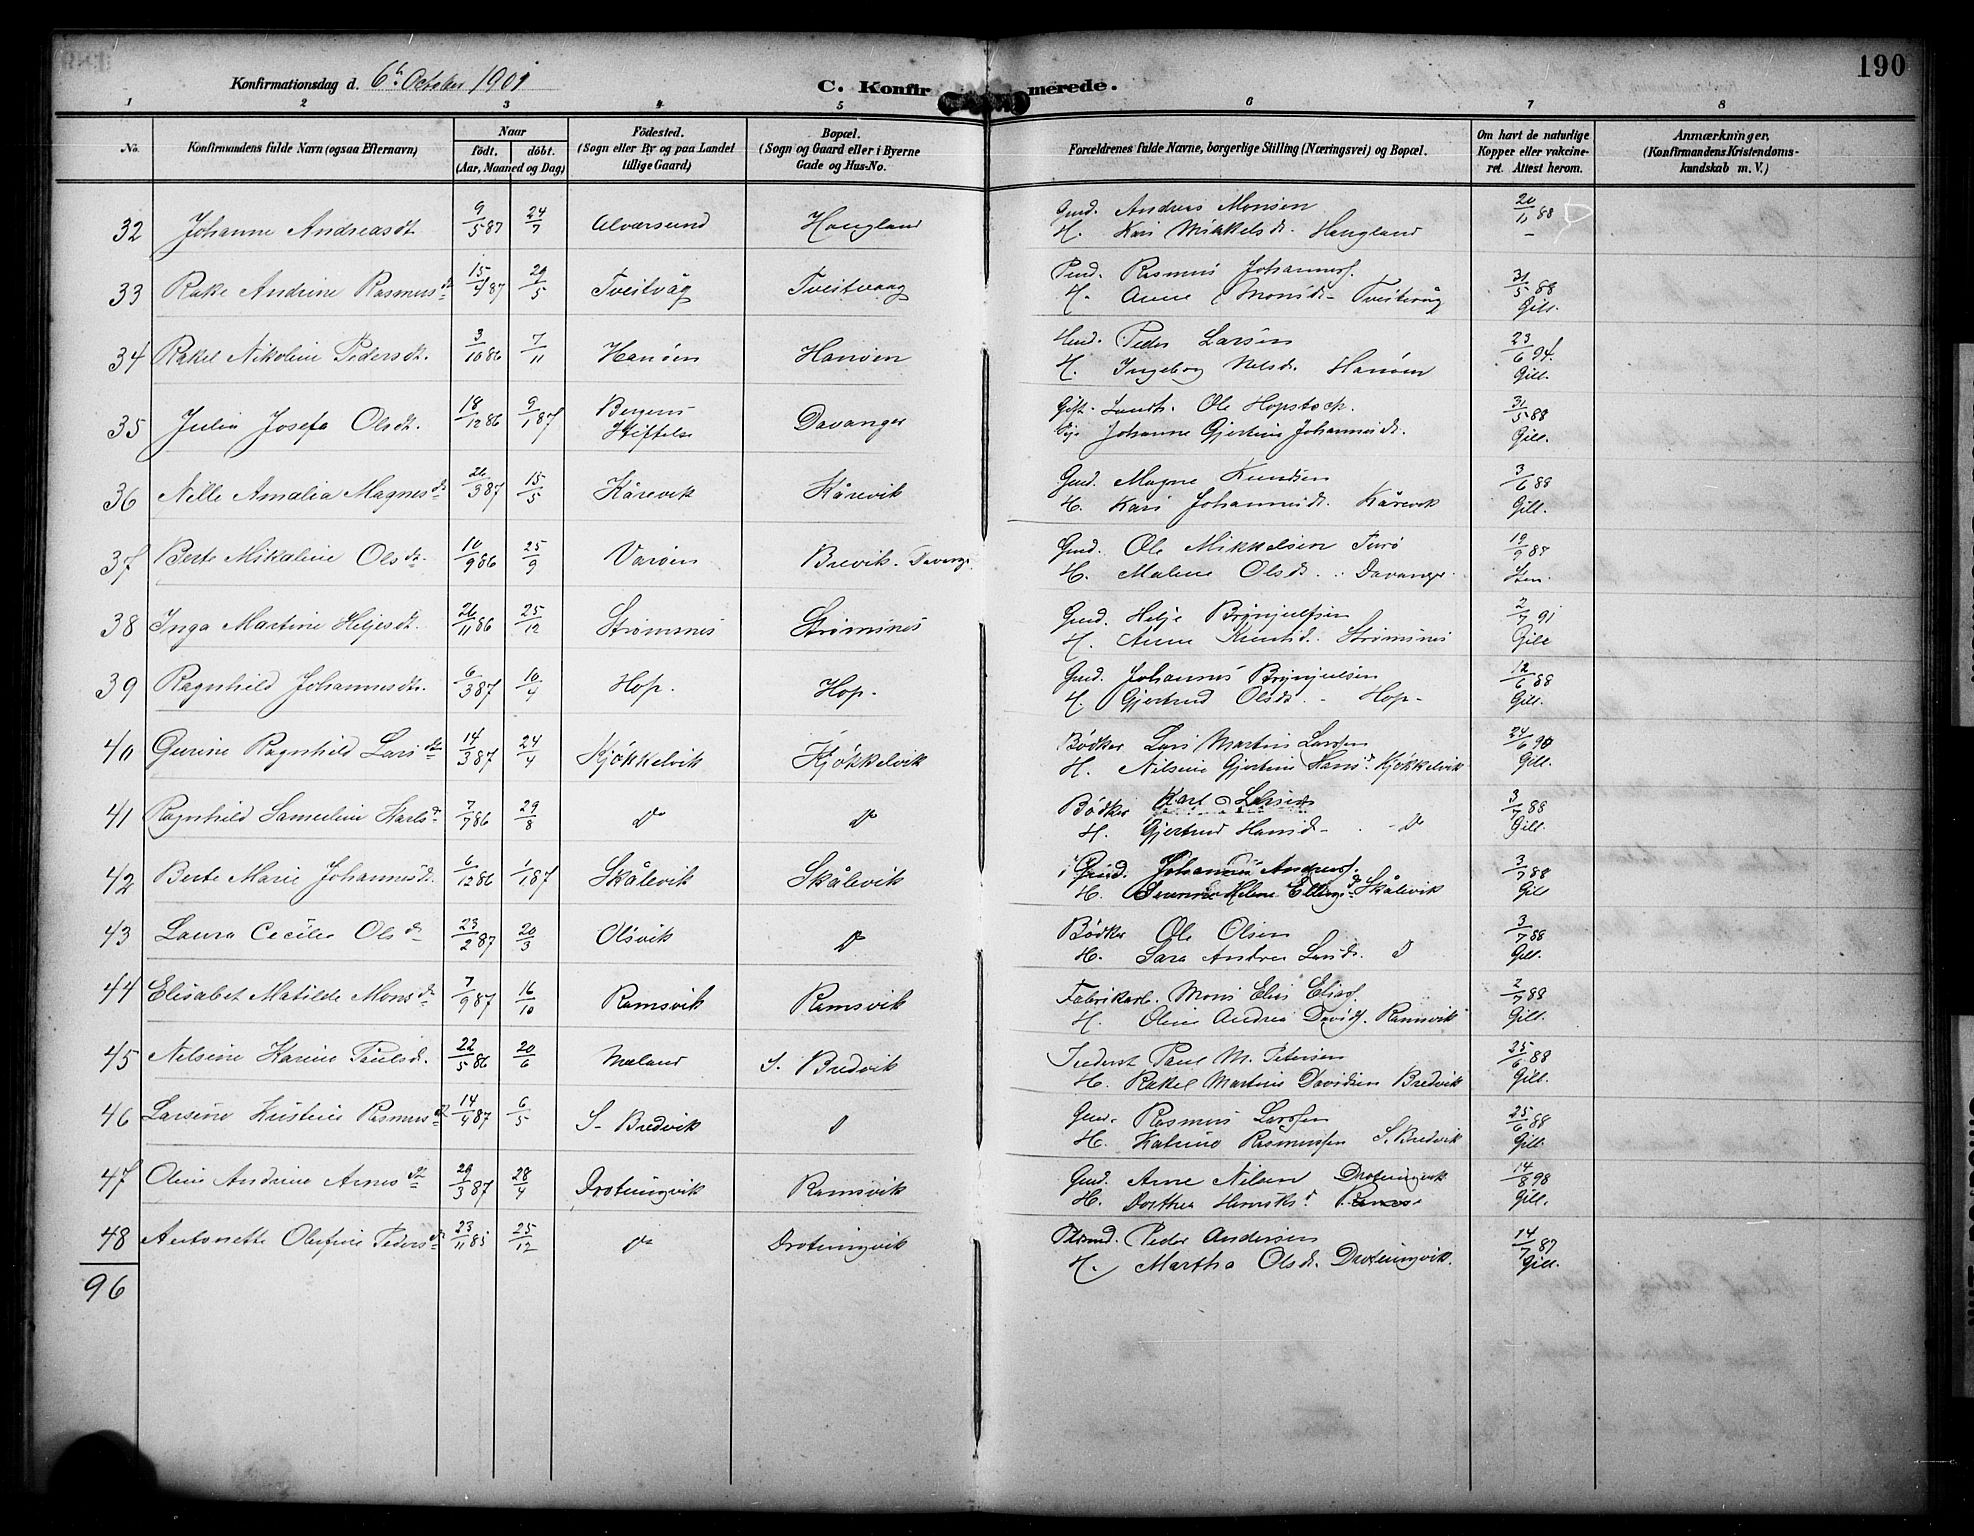 190
Konfirmationsdag d. 6te October 1901
C. Konfirmerede.
1 2 3 4 5 6 7 8
No. Konfirmandens fulde Navn (ogsaa Efternavn) Naar født, døbt. (Aar, Maaned og Dag) Fødested. (Sogn eller By og paa Landet tillige Gaard) Bopæl. (Sogn og Gaard eller i Byerne Gade og Hus-No. Forældrenes fulde Navne, borgerlige Stilling (Næringsvei) og Bopæl. Om havt de naturlige Kopper eller vakcineret. Attest herom. Anmærkninger, (Konfirmandens Kristendomskundskab m. V.)
32 Johanne Andreasdt. 9/5 87 24/7 Alversund Haugland Gmd. Andreas Monsen 20/11 88
H. Kari Mikkelsdt. Haugland
33 Rake Andrine Rasmusdt 15/4 87 29/5 Tveitvåg Tveitvaag Rasmus Johannesf. 31/5 88
H. Anne Monsdt Tveitevåg Gill.
34 Rakel Nikoline Pedersdt. 3/10 86 7/11 Hanøen Hanøen Peder Larsen 23/6 94.
H. Ingeborg Nelsdt. Hanøen Gill.
35 Julia Josefa Olsdt. 18/12 86 9/1 87 Bergens Stiftelse Davanger Gift Ole Hopstock. 31/5 88
Johanne Gjertine Johannesdt. Gill.
36 Nille Amalia Magnesdt 26/3 87 15/5 Kårevik Kårevik Gmd. Magne Knudsen 3/6 88
H. Kari Johannesdt. Kårevik Gill.
37 Berte Mikaline Olsdt. 10/9 86 25/9 Varøen Brevik. Davange Gmd. Ole Mikkelsen Turø 19/9 88
H. Malene Olsdt. Davanger
38 Inga Martine Heljesdt. 26/11 86 25/12 Strømsnes Strømsnes Gmd. Helje Brynjulfsen 2/7 91
H. Anne Knutsdt. Strømsnes Gill
39 Ragnhild Johannesdt. 6/3 87 10/4 Hop. Hop. Gmd. Johannes Brynjulsen 12/6 88
H. Gjertrud Olsdt. Hop. Gill.
40 Gurine Ragnhild Larsdt 14/3 87 24/4 Kjøkkelvik Kjøkkelvik Bødker Lars Martin Larsen 24/6 90
H. Nilsine Gjertine Hansd. Kjøkkelvik Gill.
41 Ragnhild Samueline Karlsdt 7/7 86 29/8 Do Do Bødker Karl Larsen 3/7 88
H. Gjertrud Hansdt Do Gill.
42 Berte Marie Johannesdt. 6/12 86 1/1 87 Skålevik Skålevik Gmd. Johannes Andersf. 3/7 88
H. Helene Skålevik Gill
43 Laura Cecilia Olsdt 23/2 87 20/3 Olsvik Do Bødker Ole Olsen 3/7 88
H. Sara Andrea Larsdt. D Gill.
44 Elisabet Matilde Monsdt 7/9 87 16/10 Ramsvik Ramsvik Fabrikarb. Mons Elias Eliasf. 2/7 88
H. Oline Andrea Davidsf. Ramsvik Gill.
45 Nilsine Karine Paulsd. 22/5 86 20/6 Mæland S. Bredvik Paul M. Petersen 25/6 88
H. Rakel Martine Davidsen Bredvik Gill.
46 Larsine Kristine Rasmusdt 14/4 87 6/5 S. Bredvik D Gmd. Rasmus Larssen 25/6 88
H. Katrine Rasmussen S. Bredvik Gill
47 Oline Andrine Arnesdt 29/3 87 28/4 Drotningvik Ramsvik Gmd. Arne Nilsen Drotningvik 14/8 98
H. Dorthea Henriksd Gill.
48 Antonette Olufine Pedersdt 23/11 85 25/12 Do Drotningvik Peder Andersen 14/7 87
H. Martha Olsdt. Drotningvik. Gill.
96